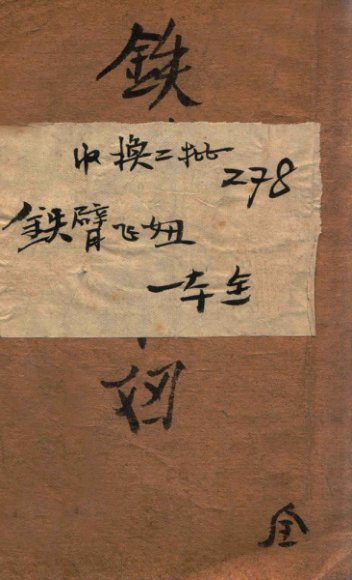 鉄
收換二批
278
鉄臂飞妞
一本全
妞
全